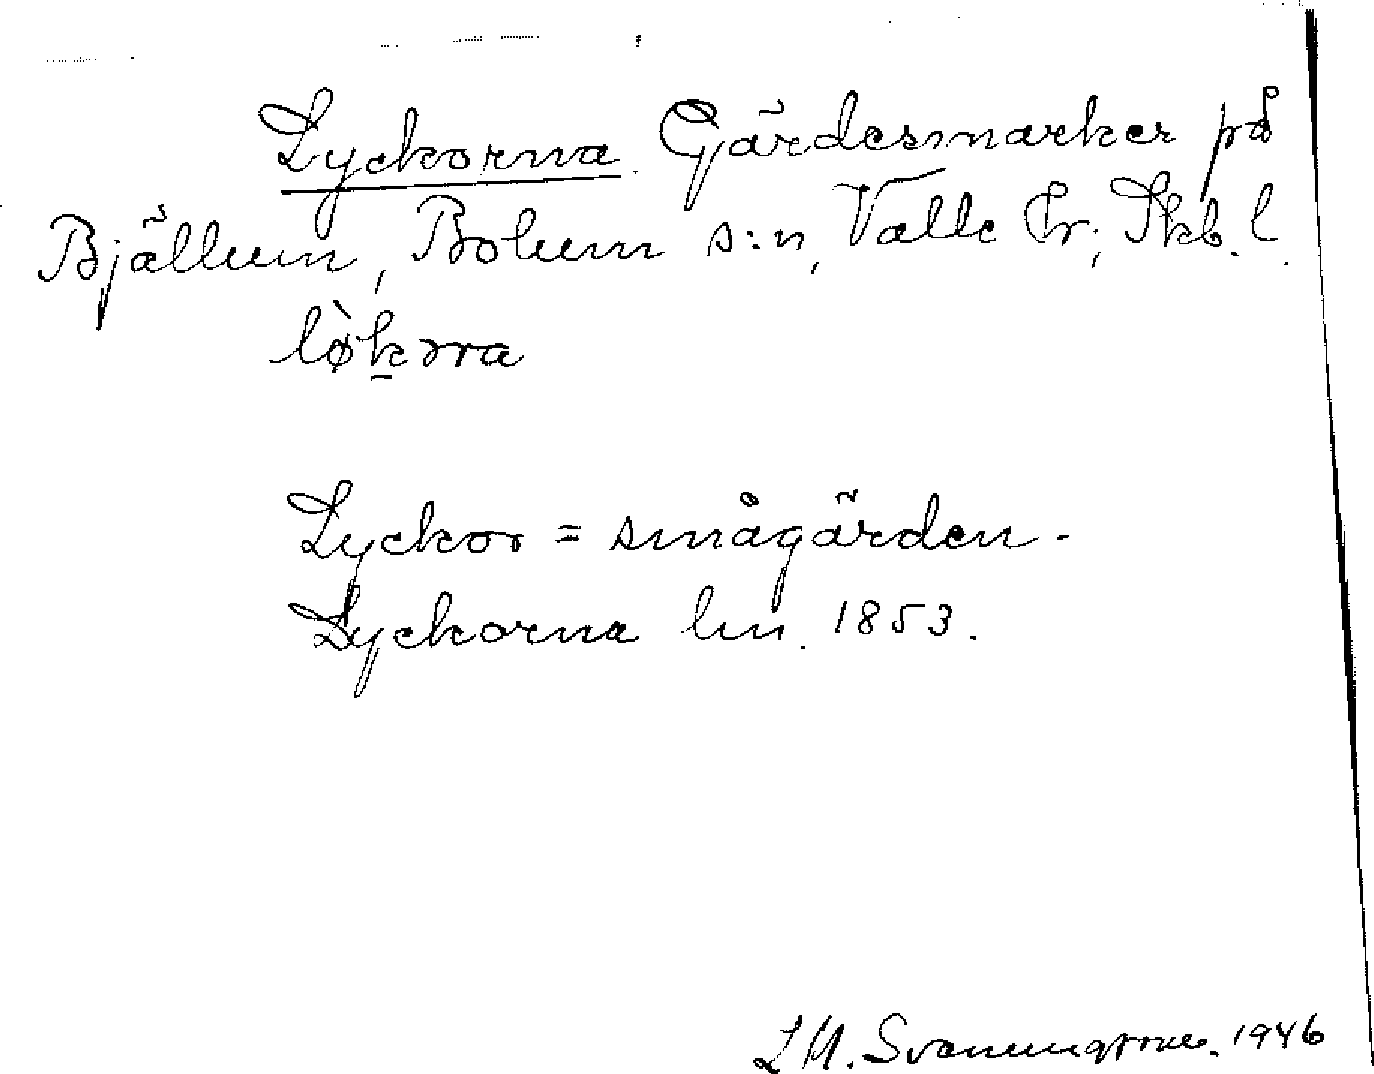 Lyckorna. Gärdesmarker på
Bjällum, Bolum s:n, Valle hr, Skb. l.
lø̀kɔrra
Lyckor = smågärden.
Lyckorna lm. 1853.
L M. Svenungsson. 1946